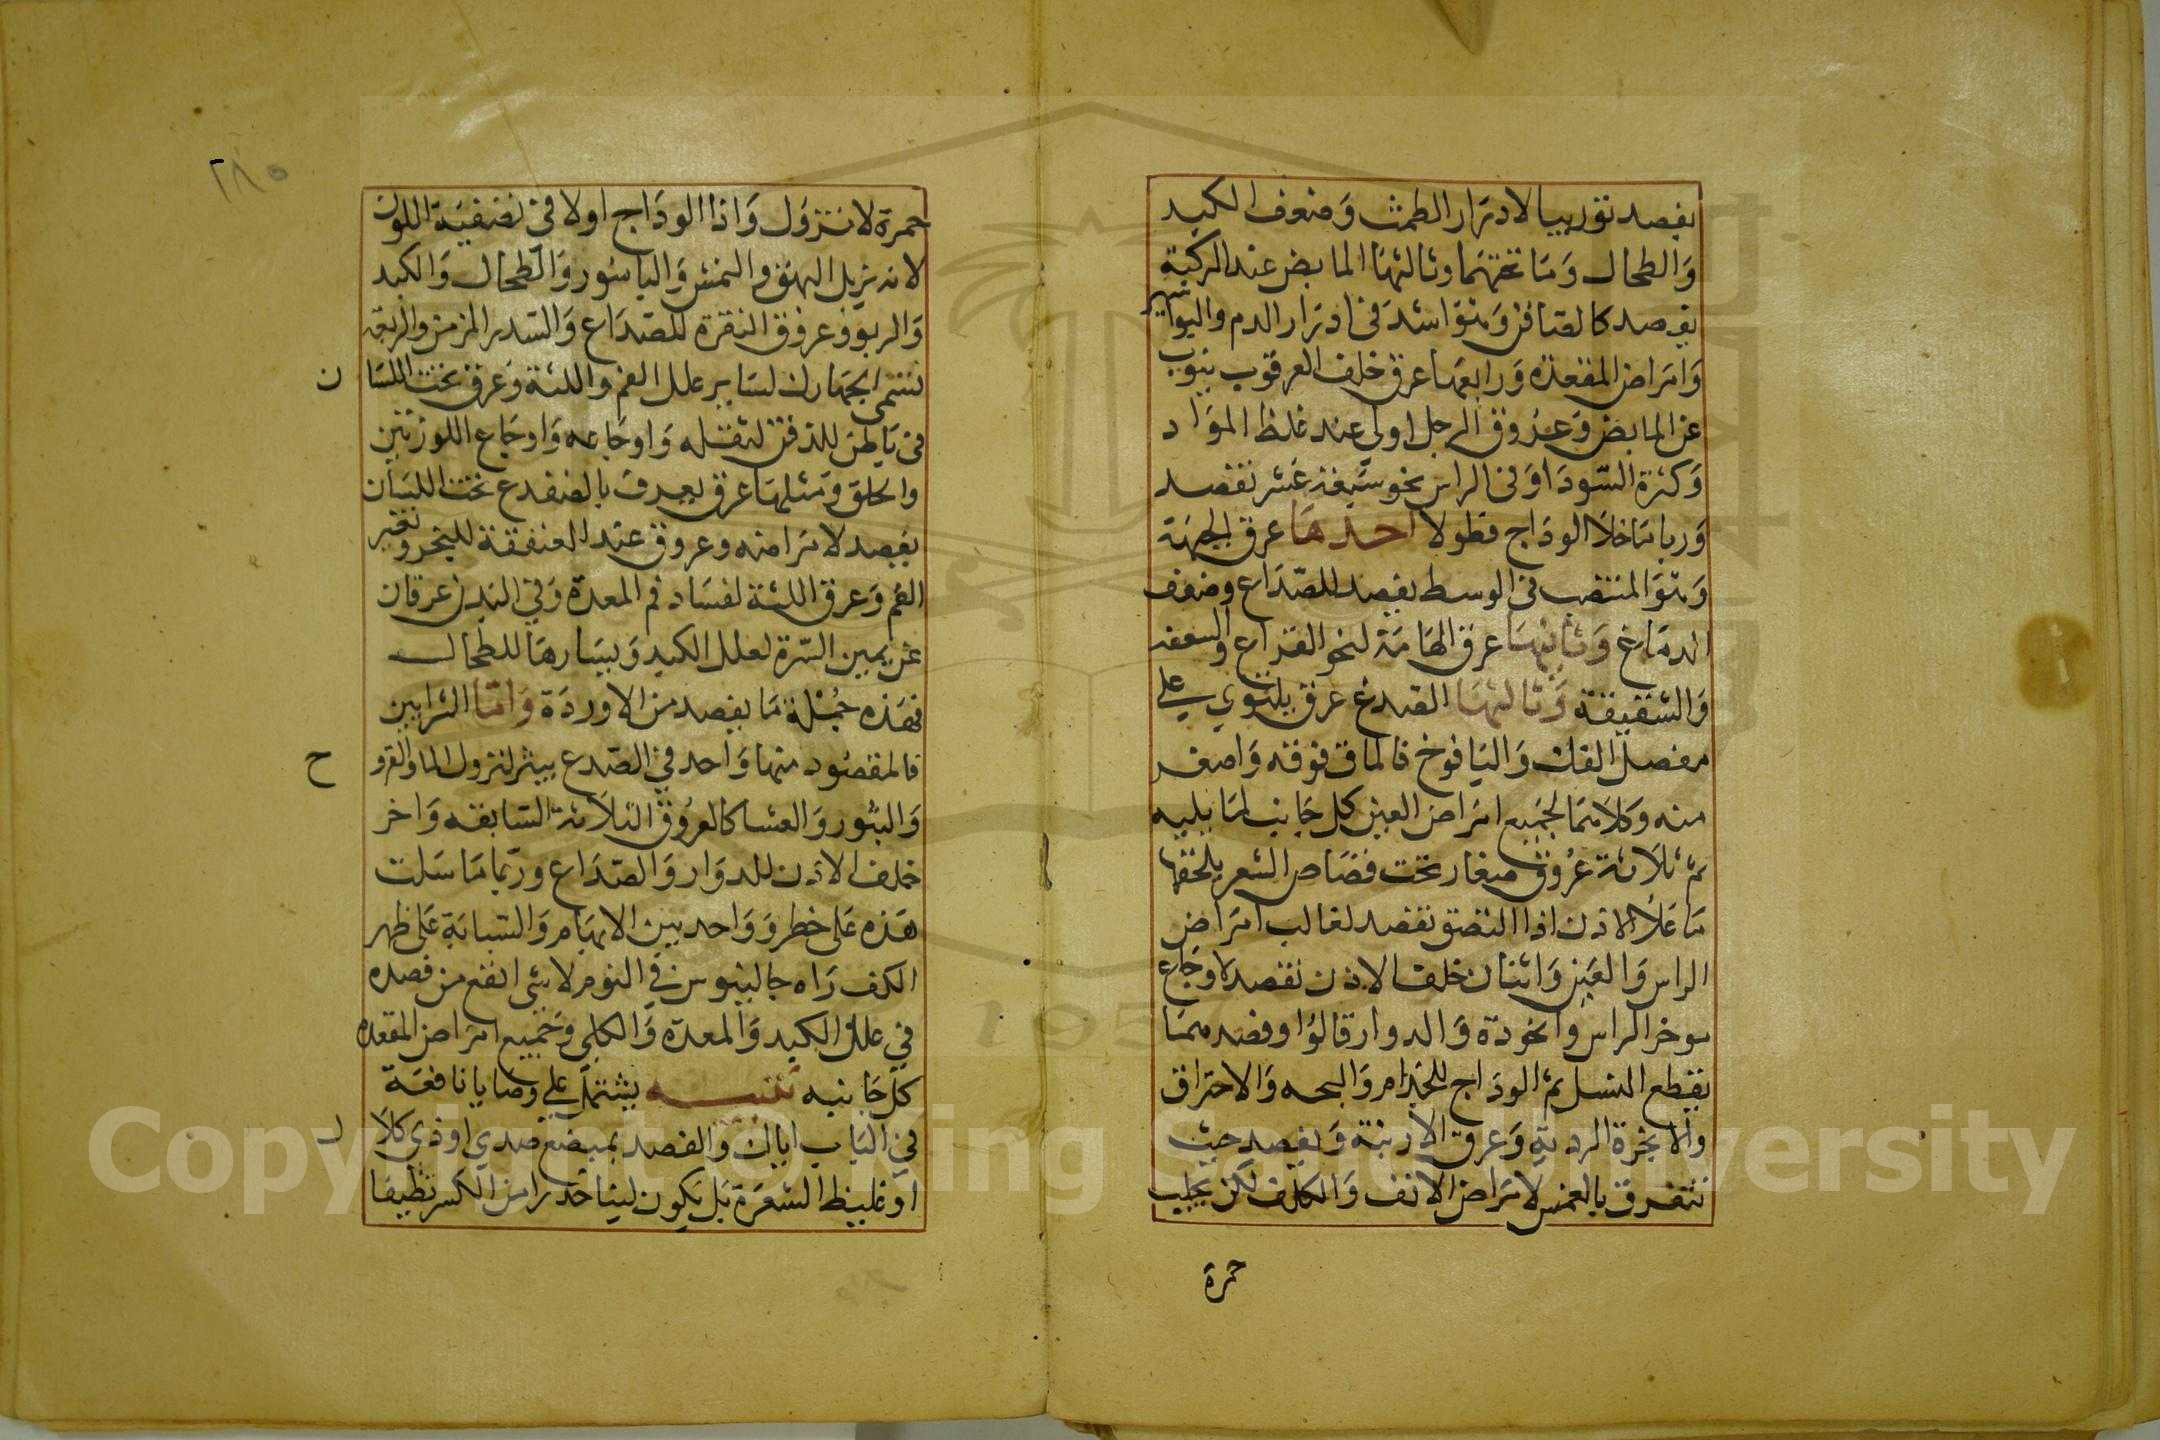 يفصد توريبا لادرار الطمث وضعف الكبد
والطحال وما تحتهما وثالثها المابض عند الركبة
يفصد كالصافن وهو اشد في ادرار الدم والبواسير
وامراض المقعدة ورابعها عرق خلف العرقوب ينوب
عن المابض وعروق الرجل اولي عند غلظ المواد
وكثرة السودا وفي الراس نحو سبعة عشر تفصد
وربا ما خلا الوداج فطولا احدها عرق الجبهة
وهو المنتصب في الوسط يفصد للصداع وضعف
الدماغ وثانيها عرق الهامة لنحو القراع والسعفه
والشقيقة وثالثها الصدغ عرق يلتوي علي
مفصل الفك واليافوخ فالماق فوقه واصغر
منه وكلاهما لجميع امراض العين كل جانب لما يليه
ثم ثلاثة عروق صغار تحت قصاص الشعر يلحقها
ما علا الاذن اذا التصق تفصد لغالب امراض
الراس والعين واثنان خلف الاذن تفصد لاوجاع
موخر الراس والخودة والدوار قالوا وفصدهما
يقطع النسل ثم الوداج للجذام والبحه والاحتراق
والابخرة الردية وعرق الارنبة ويفصد حيث
تتفرق بالغمس لامراض الانف والكلف لكن يجلب
حمرة
٢٨٥
حمرة لا تزول واذا الوداج اولا في تصفية اللون
لانه يزيل البهق والنمش والباسور والطحال والكبد
والربو وعروق النقرة للصداع والسدر المزمن واربعة
تسمي الجهارك لساير علل الفم واللثة وعرق تحت اللسا
ن
في باطن للذقن لثقله واوجاعه واوجاع اللوزتين
والحلق ومثلها عرق يعرف بالضفدع تحت اللسان
يفصد لامراضه وعروق عند العنفقة للبخر وتغير
الفم وعرق اللثة لفساد فم المعدة وفي البدن عرقان
عن يمين السرة لعلل الكبد ويسارها للطحال
فهذه جملة ما يفصد من الاوردة واما الشرايين
فالمقصود منها واحد في الصدغ يبثر لنزول الما والقرو
ح
والبثور والعشا كالعروق الثلاثة السابقه واخر
خلف الاذن للدوار والصداع وربما ما سلت
هذه علي خطر وواحد بين الابهام والسبابة علي ظهر
الكف راه جالينوس في النوم لا شي انفع من فصده
في علل الكبد والمعده والكلي وجميع امراض المقعده
كل جانبه تنبيه يشتمل علي وصايا نافعة
في الباب اياك والفصد بمبضع صدي او ذي كلا
ل
او غليظ الشعرة بل يكون لينا حذرا من الكسر نظيفا